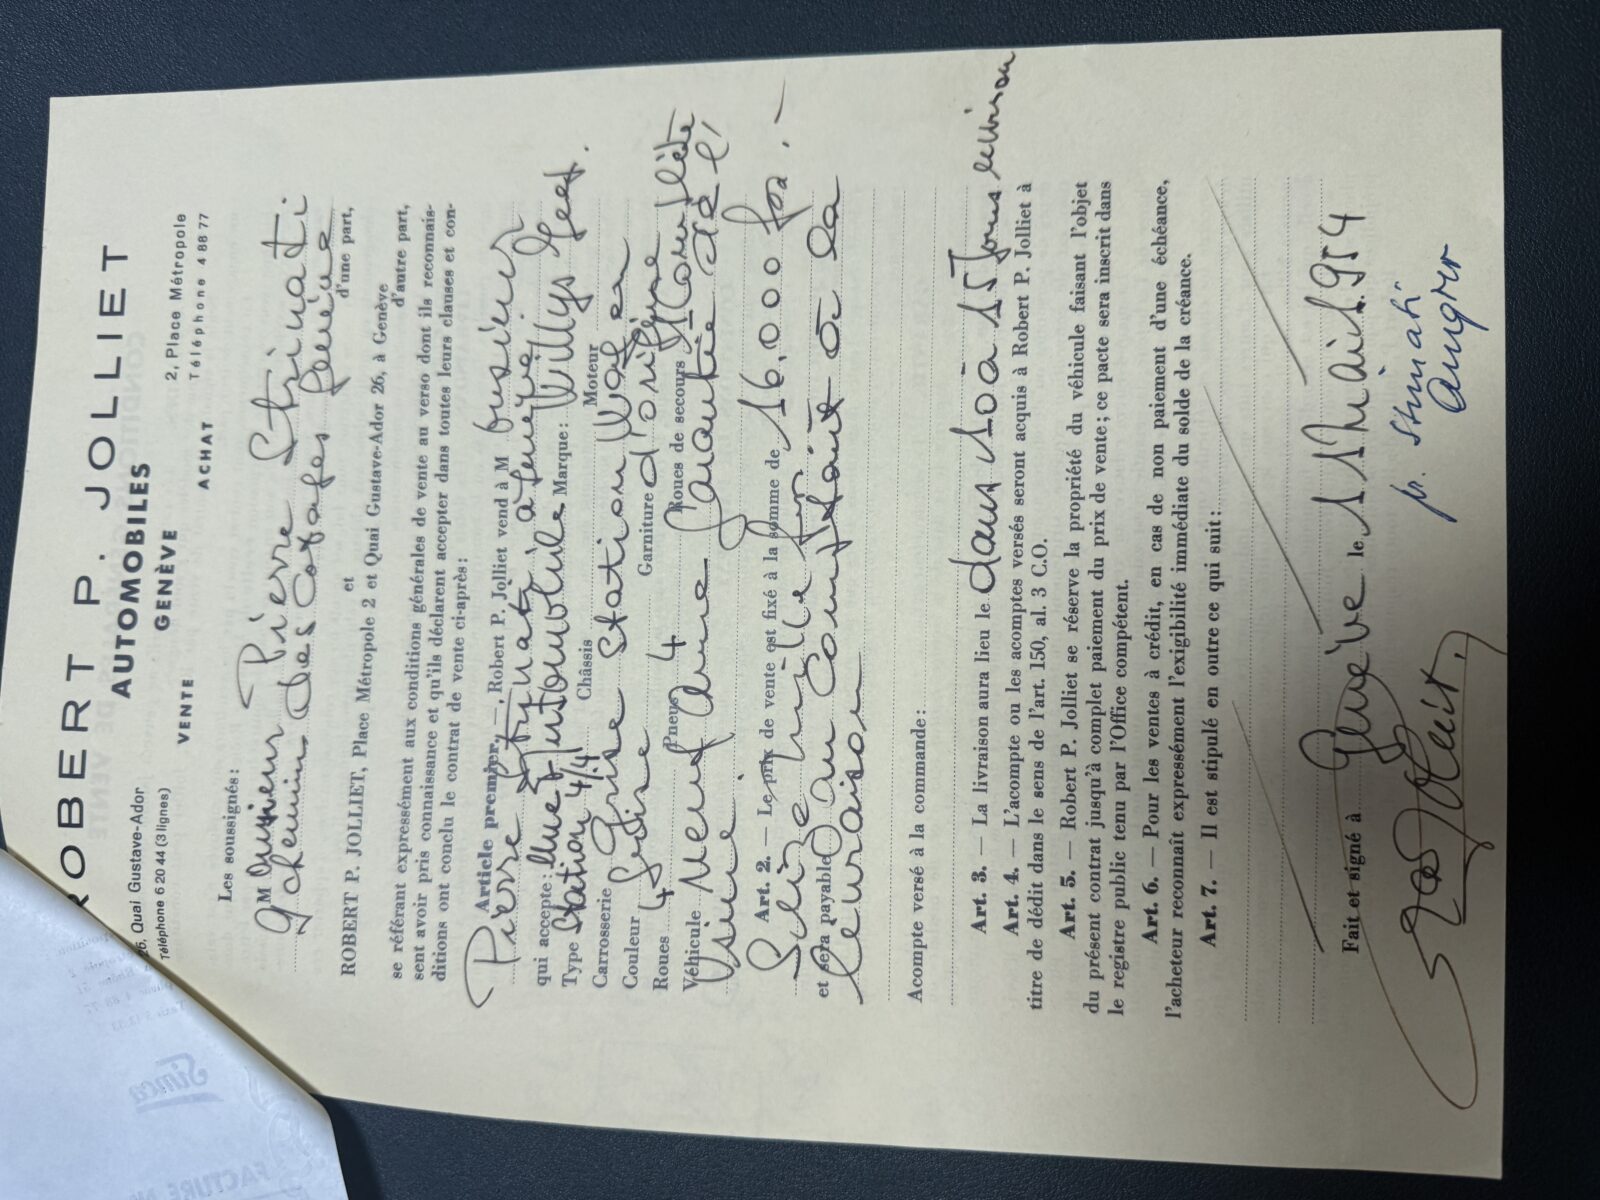 ROBERT P. JOLLIET
AUTOMOBILES
GENÈVE
VENTE
ACHAT
26, Quai Gustave-Ador
2, Place Métropole
Téléphone 6 20 44 (3 lignes)
Téléphone 4 88 77
Les soussignés:
M Monsieur Pierre Strinati
9 chemin des Cottages Genève
d'une part,
et
ROBERT P. JOLLIET, Place Métropole 2 et Quai Gustave-Ador 26, à Genève
d'autre part,
se référant expressément aux conditions générales de vente au verso dont ils reconnais-
sent avoir pris connaissance et qu'ils déclarent accepter dans toutes leurs clauses et con-
ditions ont conclu le contrat de vente ci-après:
Article premier. —, Robert P. Jolliet vend à M onsieur
Pierre Strinati, à Genève
qui accepte: Une Automobile Marque: Willys Jeep.
Type Station 4/4 Châssis Moteur
Carrosserie Station Wagon
Couleur Grise Garniture d'origine
Roues 4 Pneus 4 Roues de secours 1 Complète
Véhicule Neuf Une Garantie de l'
Usine
Art. 2. — Le prix de vente est fixé à la somme de 16.000 frs. —
Seize mille frs.
et sera payable au Comptant à la
livraison
Acompte versé à la commande:
Art. 3. — La livraison aura lieu le dans 10 à 15 jours environ
Art. 4. — L'acompte ou les acomptes versés seront acquis à Robert P. Jolliet à
titre de dédit dans le sens de l'art. 150, al. 3 C.O.
Art. 5. — Robert P. Jolliet se réserve la propriété du véhicule faisant l'objet
du présent contrat jusqu'à complet paiement du prix de vente; ce pacte sera inscrit dans
le registre public tenu par l'Office compétent.
Art. 6. — Pour les ventes à crédit, en cas de non paiement d'une échéance,
l'acheteur reconnaît expressément l'exigibilité immédiate du solde de la créance.
Art. 7. — Il est stipulé en outre ce qui suit:
Fait et signé à Genève le 11 Mai 1954
pr. Strinati
Simca
FACTURE